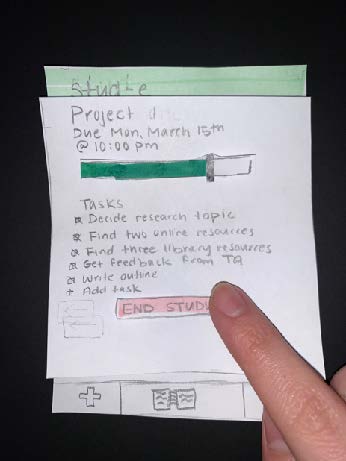 Studie
Project
Due Mon, March 15th
@ 10:00 pm
TASKS
Decide research topic
Find two online resources
Find three library resources
Get feedback from TA
Write outline
+ Add task
END STUDY